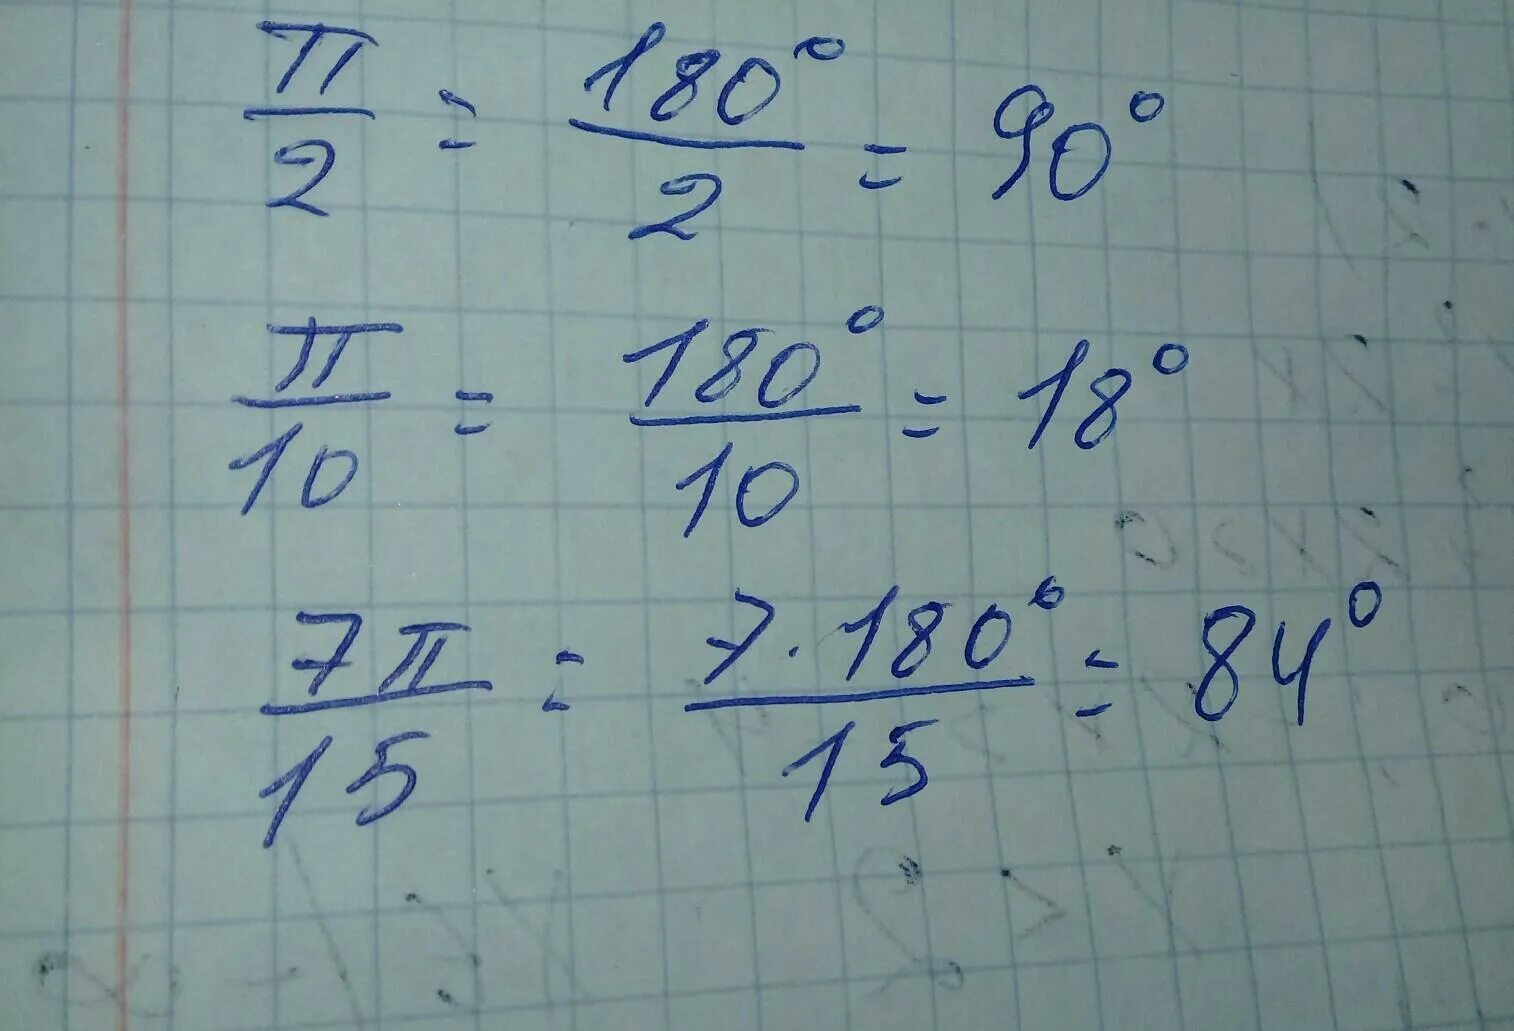 π/2 = 180°/2 = 90°
π/10 = 180°/10 = 18°
7π/15 = 7·180°/15 = 84°